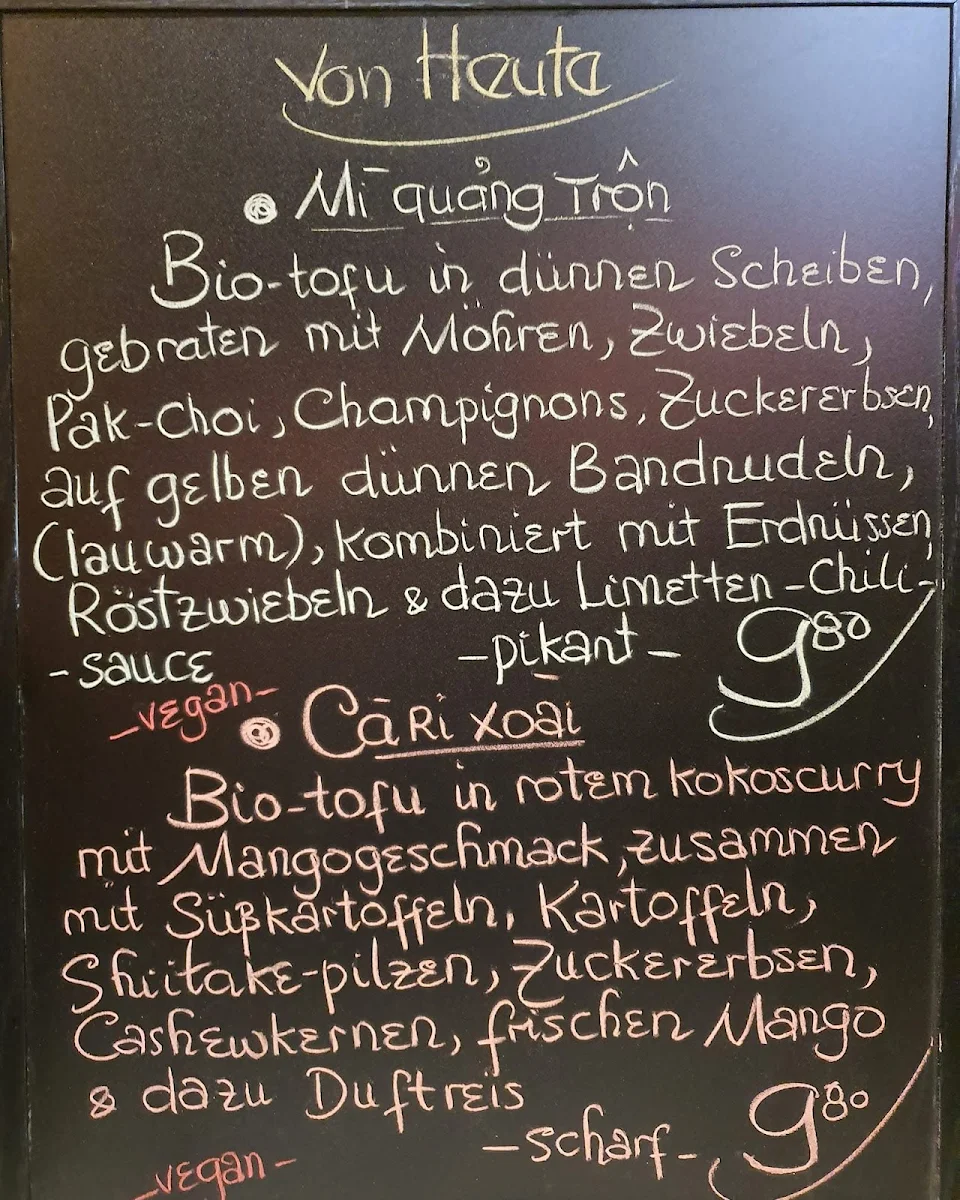 Von Heute
Mī quảng Trộn
Bio-tofu in dünnen Scheiben,
gebraten mit Möhren, Zwiebeln,
Pak-Choi, Champignons, Zuckererbsen,
auf gelben dünnen Bandnudeln,
(lauwarm), kombiniert mit Erdnüssen,
Röstzwiebeln & dazu Limetten-Chili-
-sauce -pikant- 9 80
-vegan-
Cà Ri xoài
Bio-tofu in rotem kokoscurry
mit Mangogeschmack, zusammen
mit Süßkartoffeln, Kartoffeln,
Shiitake-pilzen, Zuckererbsen,
Cashewkernen, frischen Mango
& dazu Duftreis
-scharf- 9 80
-vegan-